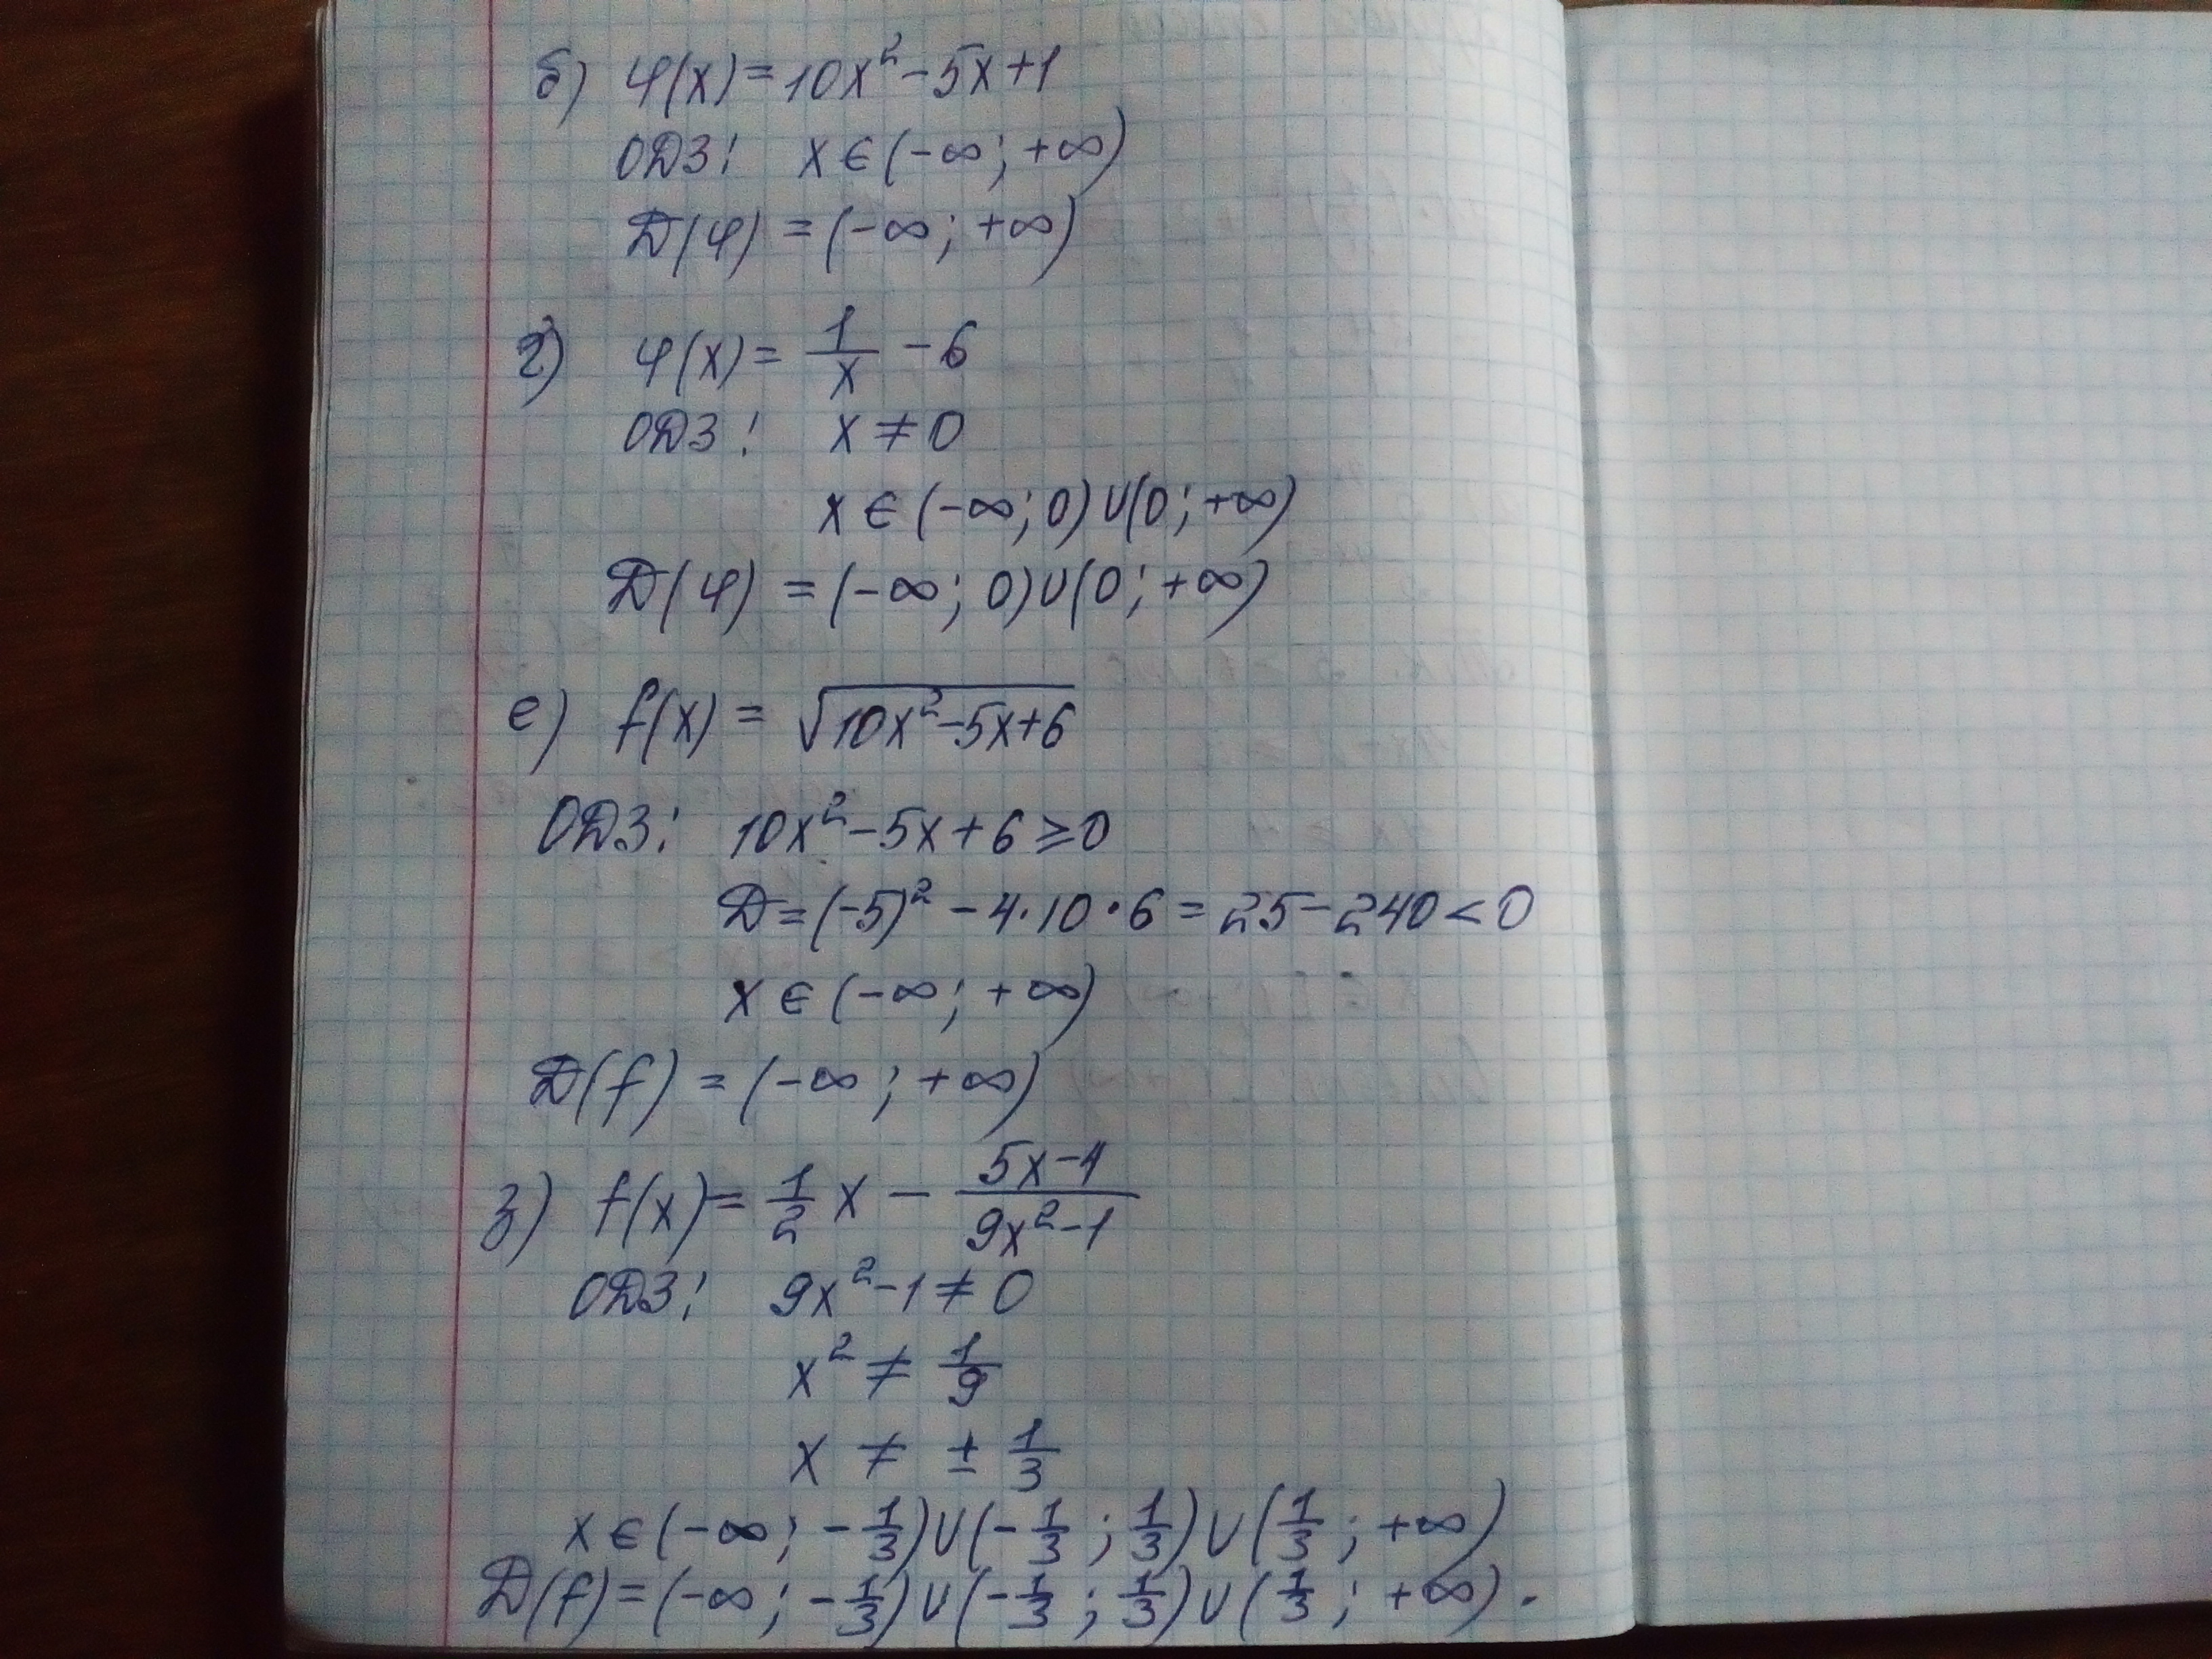 б) φ(x) = 10x² - 5x + 1
ОДЗ: x ∈ (-∞; +∞)
D(φ) = (-∞; +∞)
г) φ(x) = 1/x - 6
ОДЗ: x ≠ 0
x ∈ (-∞; 0) ∪ (0; +∞)
D(φ) = (-∞; 0) ∪ (0; +∞)
е) f(x) = √(10x² - 5x + 6)
ОДЗ: 10x² - 5x + 6 ≥ 0
D = (-5)² - 4·10·6 = 25 - 240 < 0
x ∈ (-∞; +∞)
D(f) = (-∞; +∞)
з) f(x) = 1/2 x - (5x-1)/(9x²-1)
ОДЗ: 9x² - 1 ≠ 0
x² ≠ 1/9
x ≠ ± 1/3
x ∈ (-∞; -1/3) ∪ (-1/3; 1/3) ∪ (1/3; +∞)
D(f) = (-∞; -1/3) ∪ (-1/3; 1/3) ∪ (1/3; +∞).